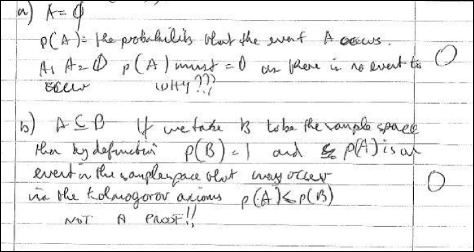 a) A = ∅
P(A) = the probability that the event A occurs.
As A = ∅ P(A) must = 0 as there is no event to O
occur WHY???
b) A ⊆ B If we take B to be the sample space
then by definition P(B) = 1 and P(A) is an
event in the sample space that may occur O
via the Kolmogorov axioms P(A) ≤ P(B)
NOT A PROOF!!